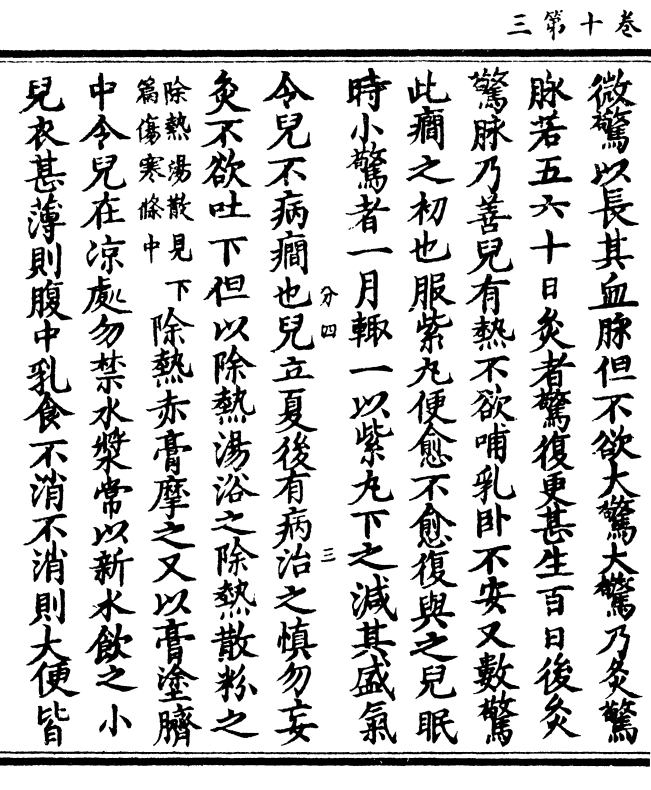 卷十第三
微驚以長其血脉但不欲大驚大驚乃灸驚
脉若五六十日灸者驚復更甚生百日後灸
驚脉乃善兒有熱不欲哺乳卧不安又數驚
此癇之初也服紫丸便愈不愈復與之兒眠
時小驚者一月輙一以紫丸下之減其盛氣
令兒不病癇也兒立夏後有病治之慎勿妄
分四
三
灸不欲吐下但以除熱湯浴之除熱散粉之
除熱湯散見下
篇傷寒條中
除熱赤膏摩之又以膏塗臍
中令兒在凉處勿禁水漿常以新水飲之小
兒衣甚薄則腹中乳食不消不消則大便皆